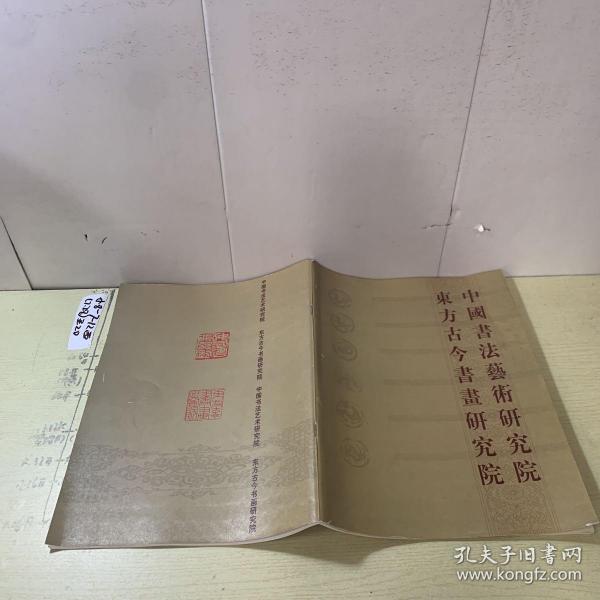 中國書法藝術研究院
東方古今書畫研究院
中国书法艺术研究院 东方古今书画研究院 中国书法艺术研究院 东方古今书画研究院
孔夫子旧书网
www.kongfz.com